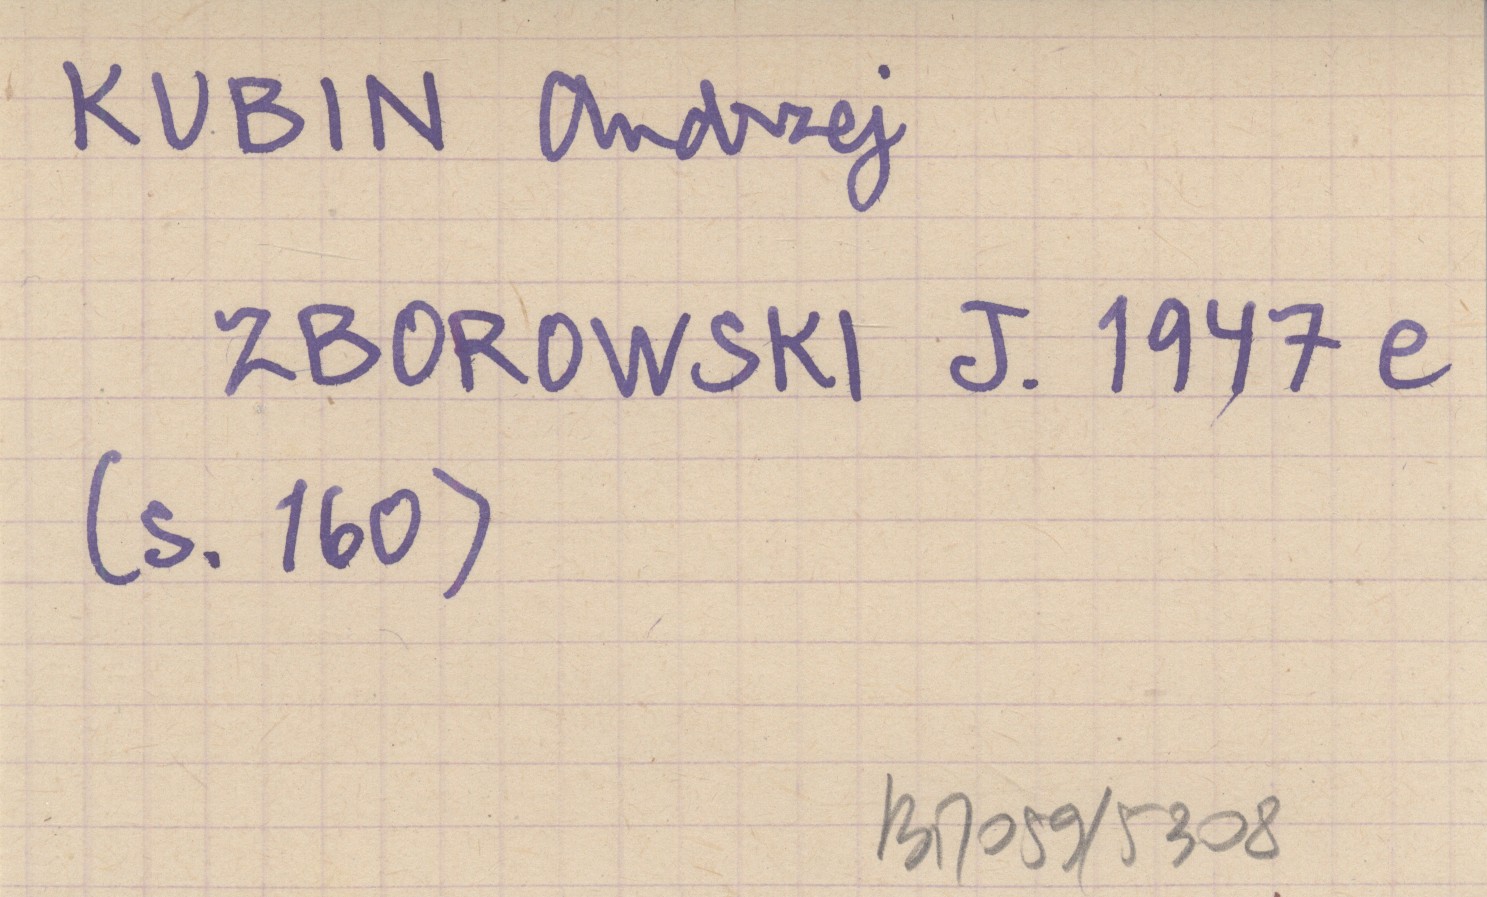 KUBIN Andrzej
ZBOROWSKI J. 1947 e
(s. 160)
BM059/5308